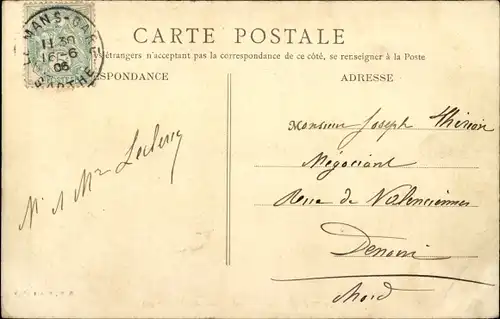 LE MANS-GARE
11 30
16-6
06
SARTHE
CARTE POSTALE
étrangers n'acceptant pas la correspondance de ce côté, se renseigner à la Poste
ESPONDANCE
ADRESSE
Monsieur Joseph Thirion
Négociant
Rue de Valenciennes
Denain
Nord
Mr et Mme Leclercq